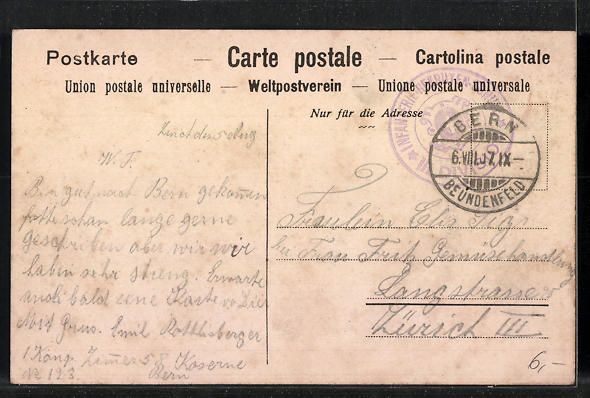 Postkarte — Carte postale — Cartolina postale
Union postale universelle — Weltpostverein — Unione postale universale
Nur für die Adresse
BERN
6.VIII.07.IX–
BEUNDENFELD
INFANTERIE
W. T.
Bin gut nach Bern gekommen
schon lange gerne
geschriben aber wir
habin sehr streng. Erwarte
auch bald eine Karte von Dir
Mit Gruss. Emil Röthlisberger
1 Komp. Zimmer 58 Kaserne
No 123. Bern
Fraulein
bei Frau Fritz Gemüsehandlung
Langstrasse
Zürich III
6,–